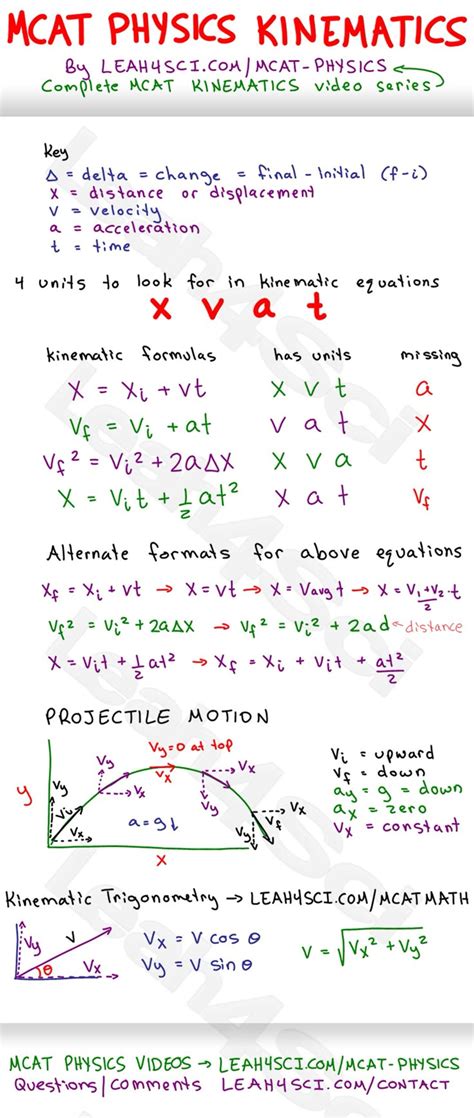 MCAT PHYSICS KINEMATICS
By LEAH4SCI.COM/MCAT-PHYSICS
Complete MCAT KINEMATICS video series
Key
Δ = delta = change = final - Initial (f-i)
X = distance or displacement
V = velocity
a = acceleration
t = time
4 units to look for in kinematic equations
X V a t
kinematic formulas has units missing
X = Xi + vt X V t a
Vf = Vi + at V a t X
Vf² = Vi² + 2aΔX X V a t
X = Vit + 1/2 at² X a t Vf
Alternate formats for above equations
Xf = Xi + vt → X = vt → X = Vavg t → X = V1+V2/2 · t
Vf² = Vi² + 2aΔX → Vf² = Vi² + 2ad ← distance
X = Vit + 1/2 at² → Xf = Xi + Vit + at²/2
PROJECTILE MOTION
Vy=0 at top
Vx
Vy
Vx
Vx
Vy
y
Vy
Vi
Vx
a=g↓
Vx
Vy
Vf
X
Vi = upward
Vf = down
ay = g = down
ax = zero
Vx = constant
Kinematic Trigonometry → LEAH4SCI.COM/MCATMATH
Vy
V
θ
Vx
Vx = V cos θ
Vy = V sin θ
V = √Vx² + Vy²
MCAT PHYSICS VIDEOS → LEAH4SCI.COM/MCAT-PHYSICS
Questions/Comments LEAH4SCI.COM/CONTACT
Leah4Sci
Leah4Sci
Leah4Sci